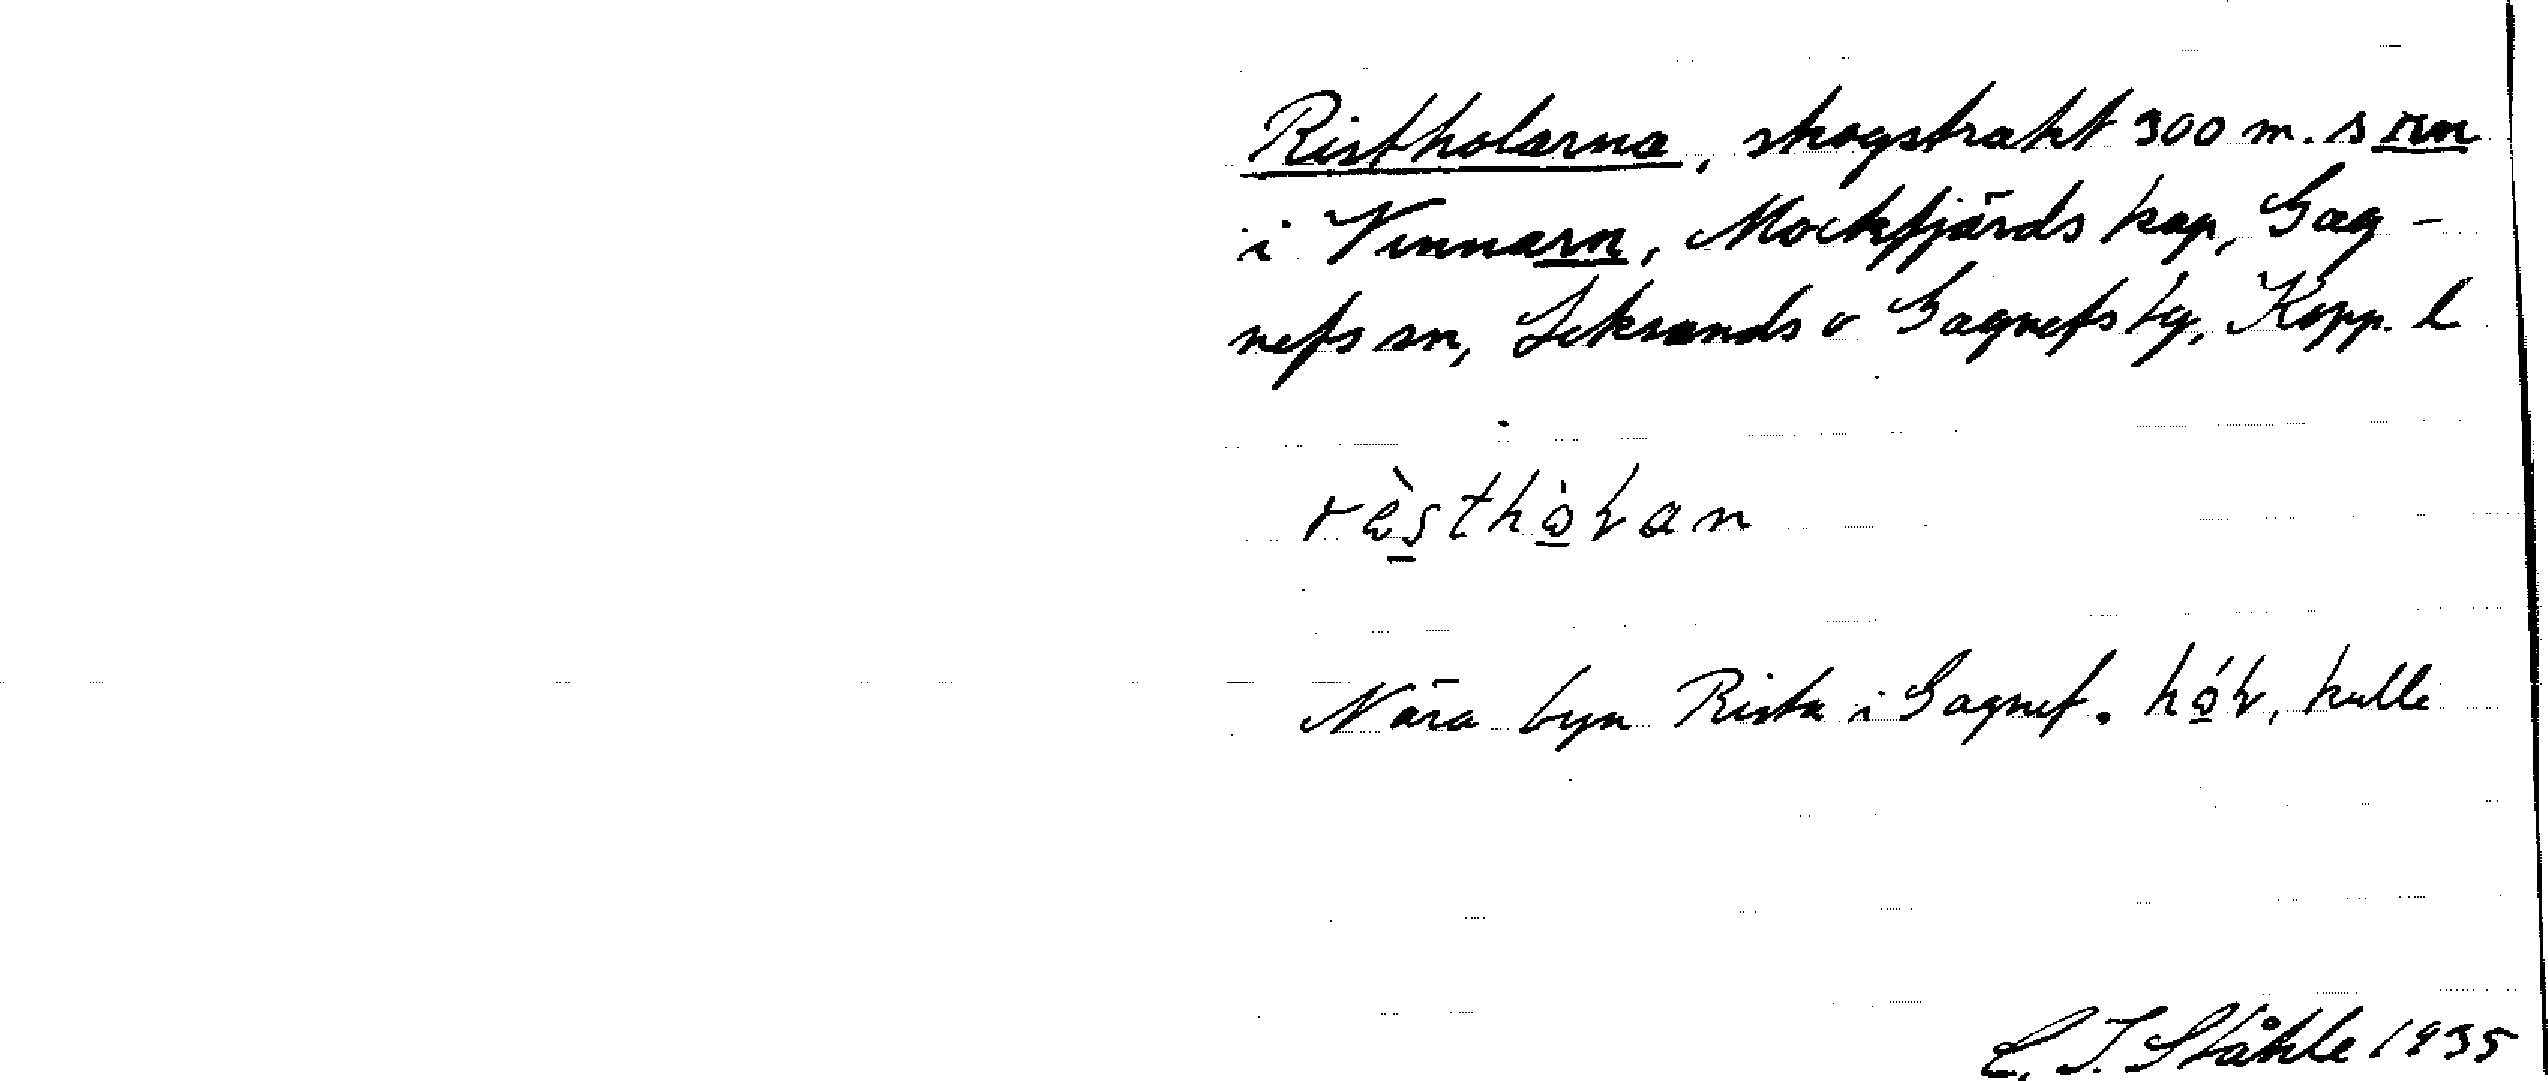 Ristholarna, skogstrakt 300 m. s rm
i Vinnarn, Mockfjärds kap, Gag-
nefs sn, Leksands o Gagnefs tg, Kopp. l
rèsthòɫan
Nära byn Rista i Gagnef. hóɫ, kulle
C. I. Ståhle 1935